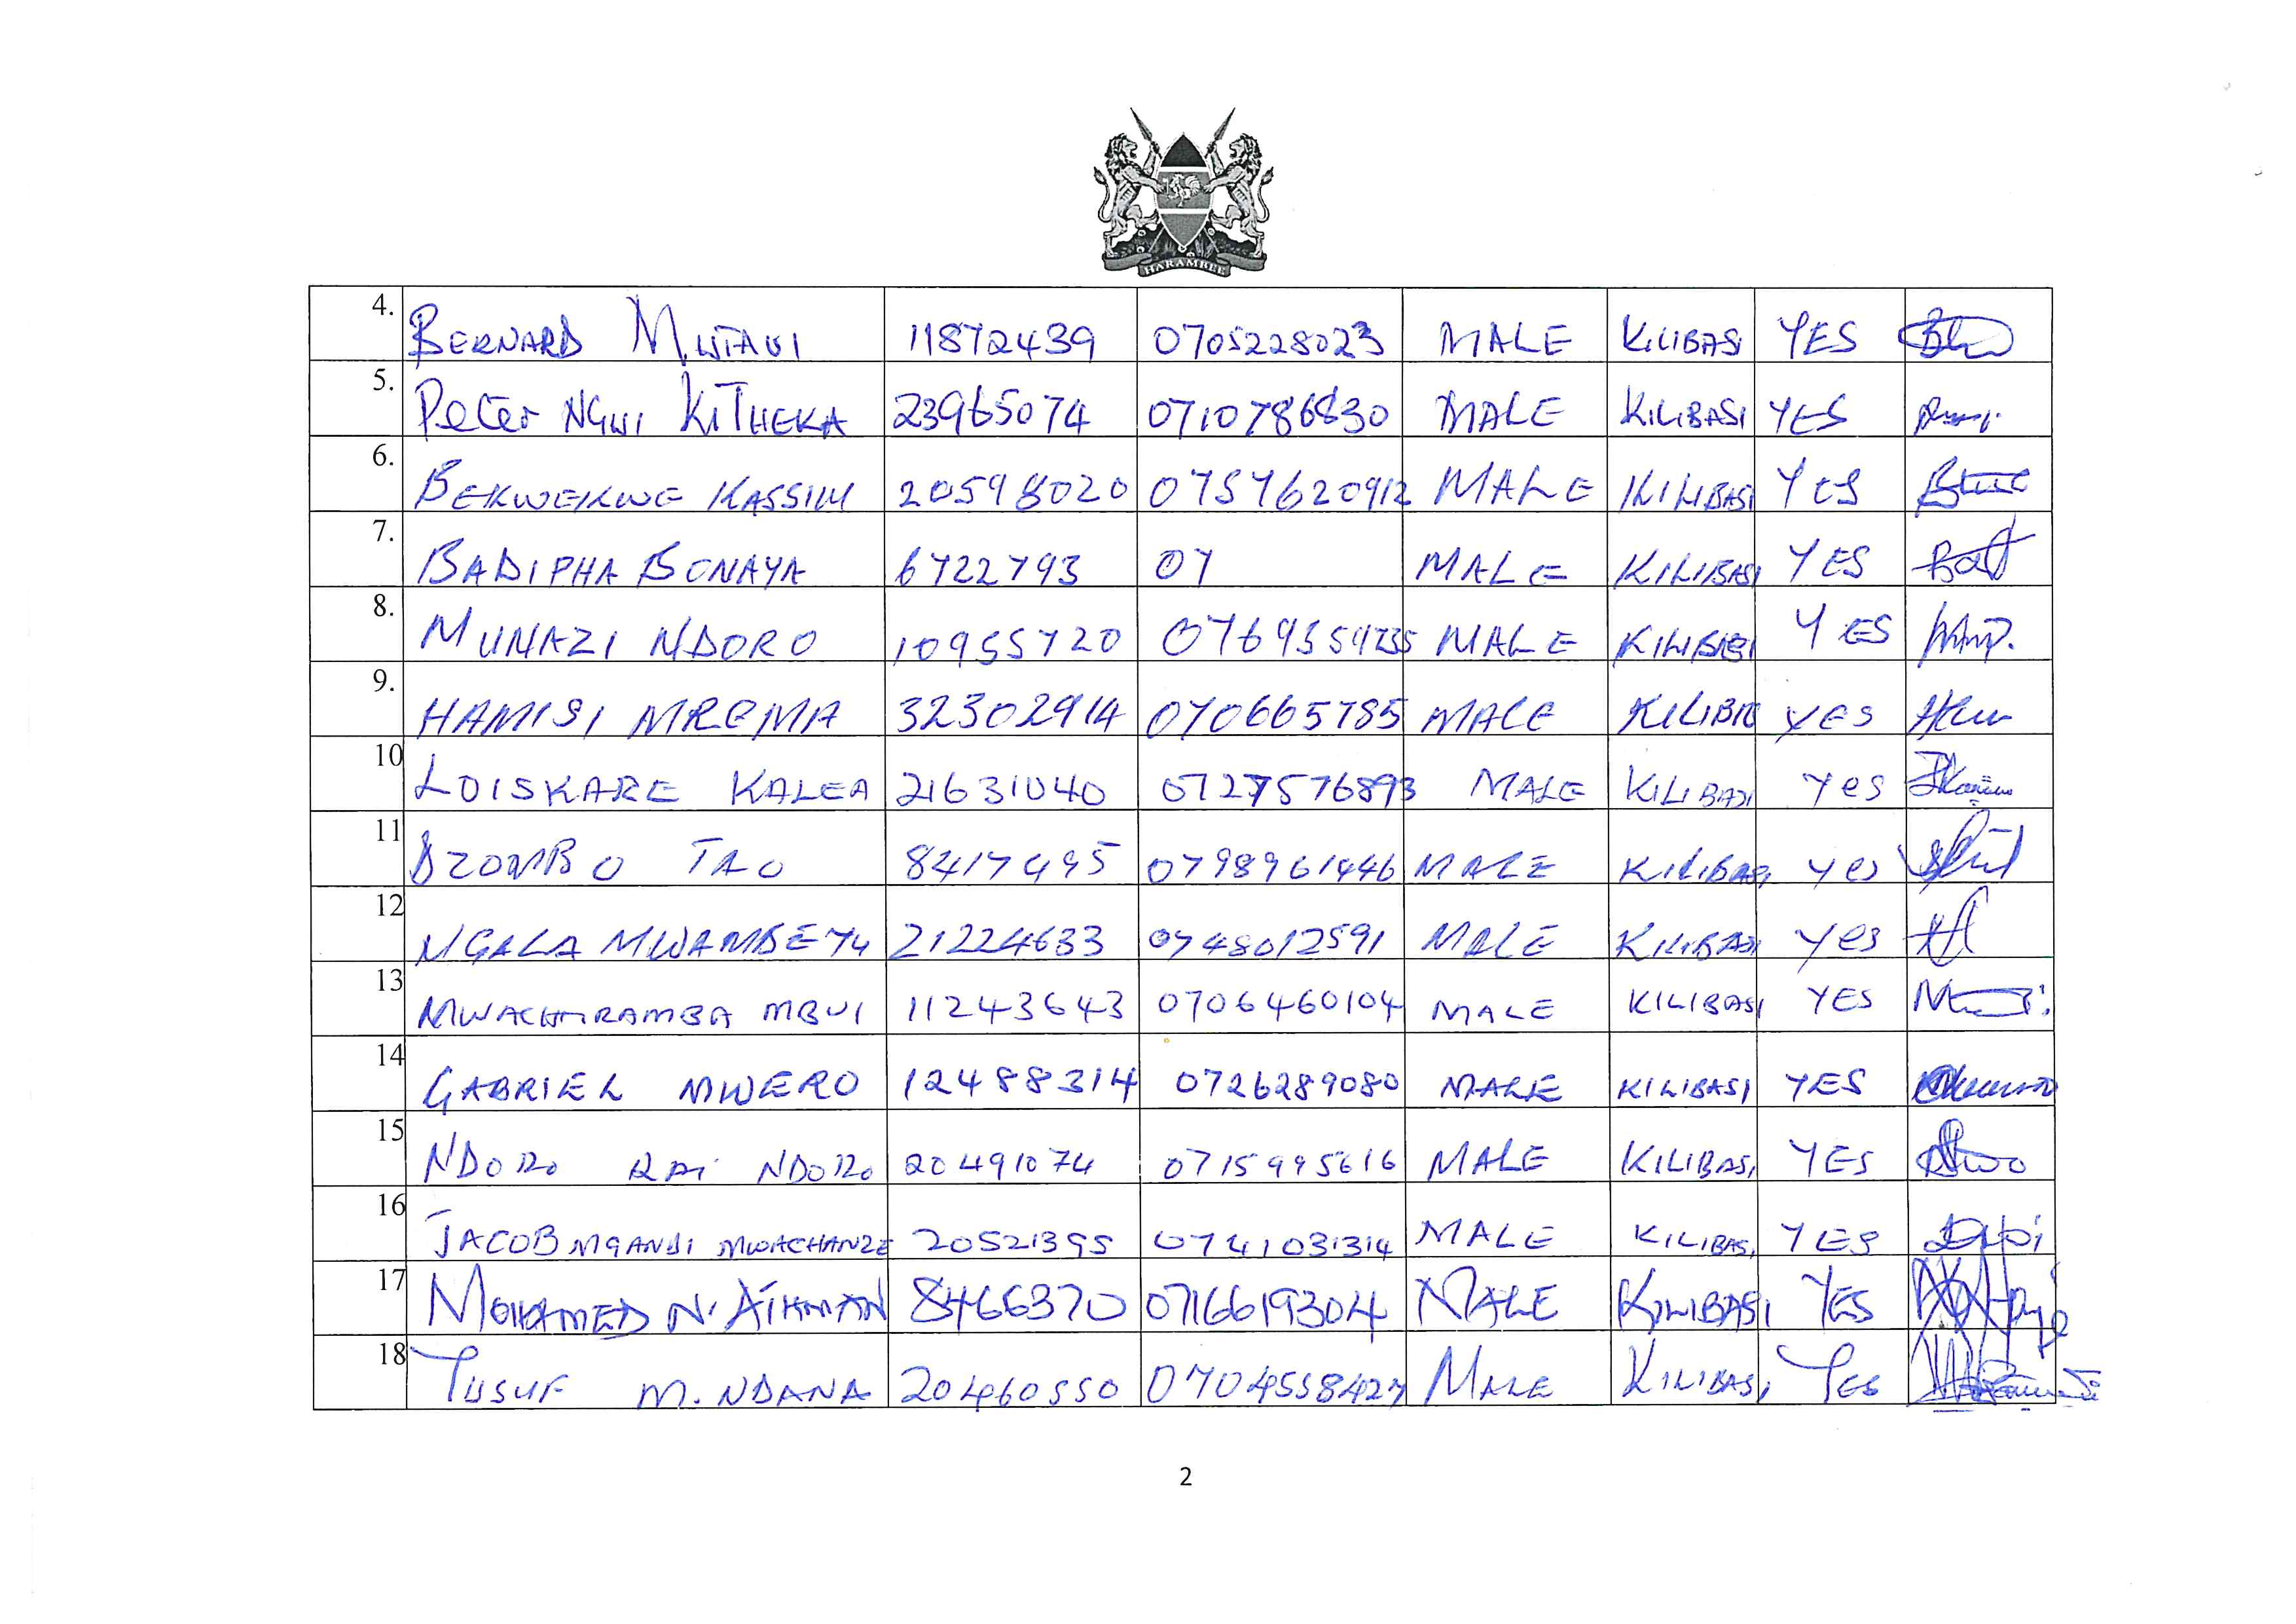 HARAMBEE
4. BERNARD MWTAVI 11872439 0705228023 MALE KILIBASI YES
5. Peter NGWI KITHEKA 23965074 0710786830 MALE KILIBASI YES
6. BEKWEKWE KASSIM 20598020 0757620912 MALE KILIBASI YES
7. BADIPHA BONAYA 6722793 07 MALE KILIBASI YES
8. MUNAZI NDORO 10955720 MALE KILIBASI YES
9. HAMISI MREMA 32302914 070665785 MALE YES
10 LOISKARE KALEA 21631040 0727576893 MALE KILIBASI Yes
11 DZOMBO TAO 8417495 0798961446 MALE KILIBASI Yes
12 NGALA 21224633 0748012591 MALE KILIBASI Yes
13 MWACHIRAMBA MBUI 11243643 0706460104 MALE KILIBASI YES
14 GABRIEL MWERO 12488314 0726289080 MALE KILIBASI YES
15 NDORO RAI NDORO 20491074 0715995616 MALE KILIBASI YES
16 JACOB MGANDI MWACHANZE 20521395 0741031314 MALE KILIBASI YES
17 MOHAMED N. ATHMAN 8466370 0716619304 MALE KILIBASI YES
18 YUSUF M. NDANA 20460550 0704558427 MALE KILIBASI YES
2